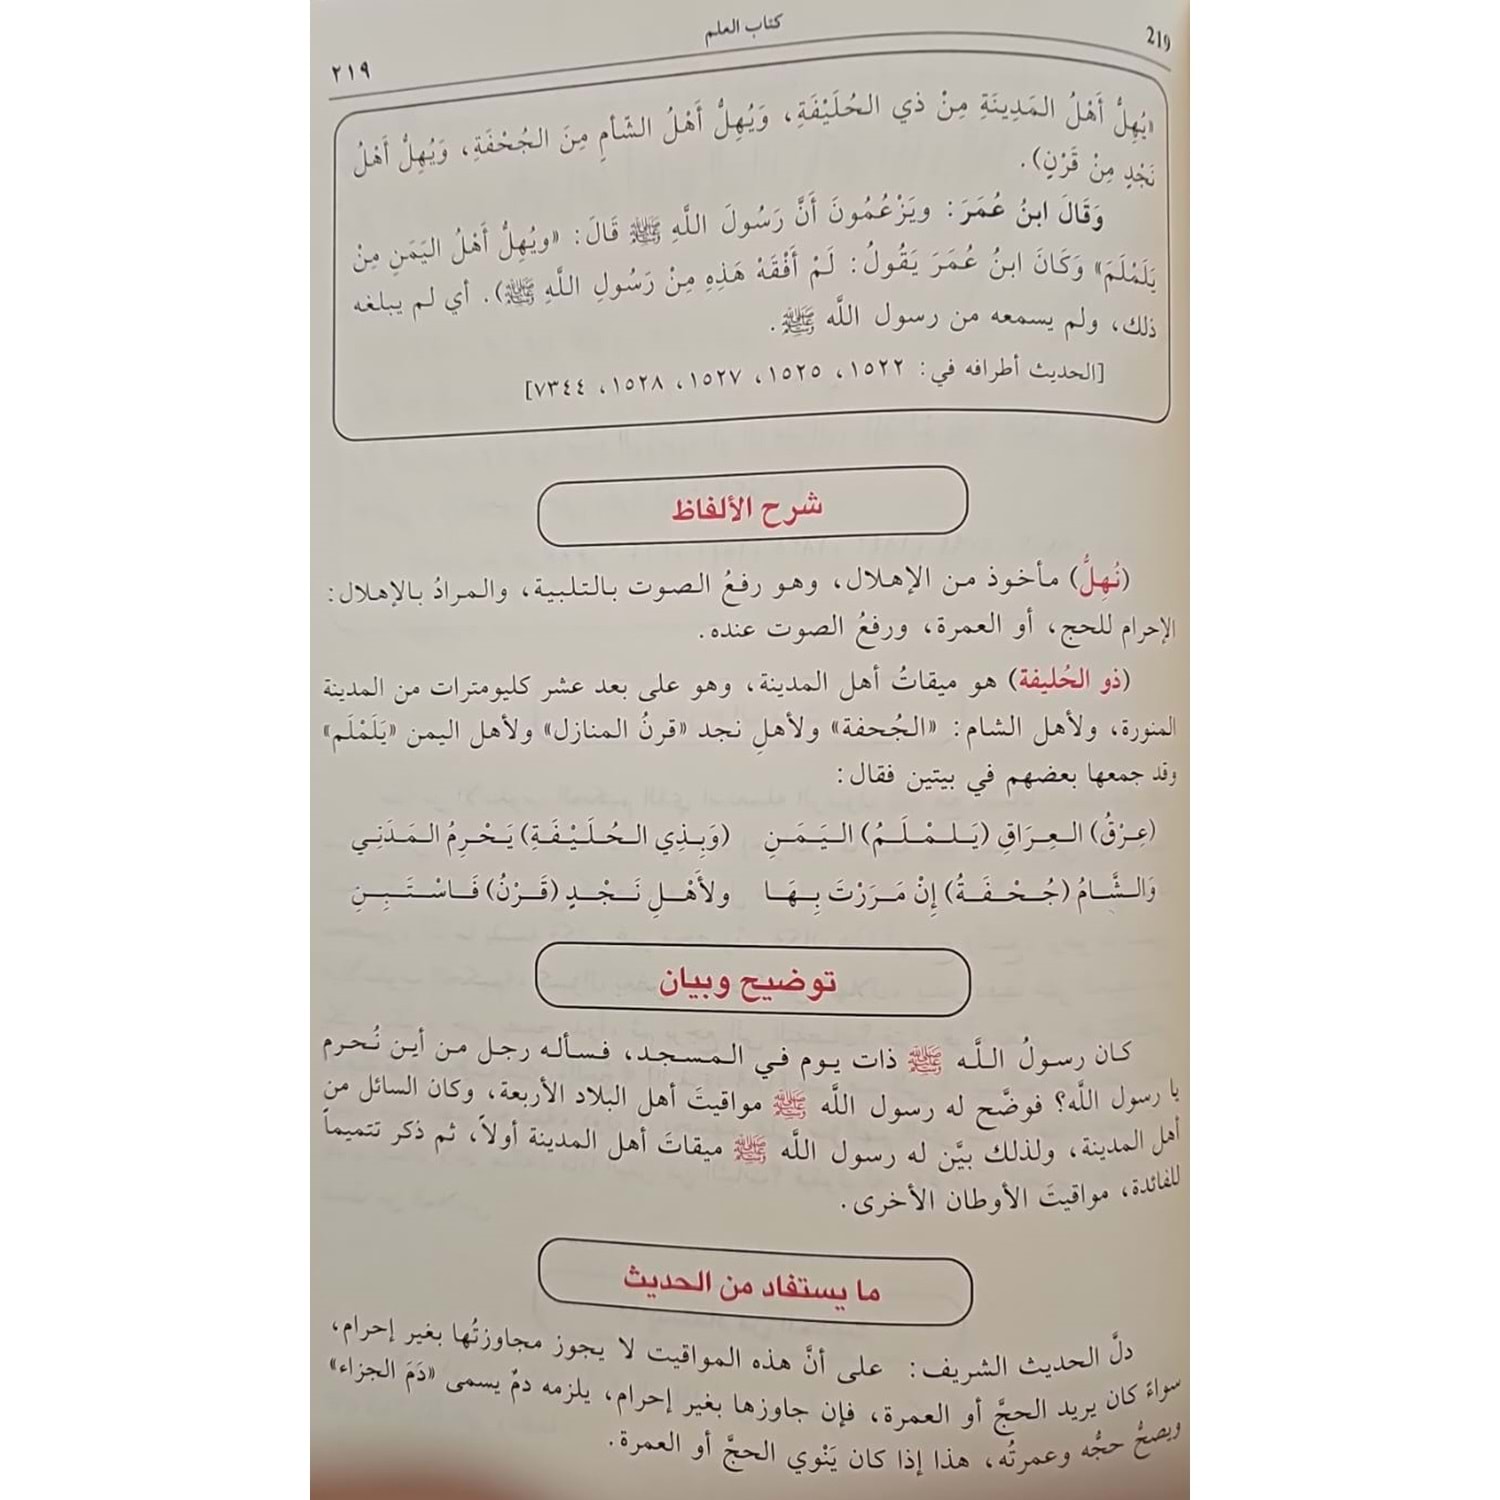 219
كتاب العلم
٢١٩
«يُهِلُّ أَهْلُ المَدِينَةِ مِنْ ذي الحُلَيْفَةِ، وَيُهِلُّ أَهْلُ الشّأمِ مِنَ الجُحْفَةِ، وَيُهِلُّ أَهْلُ
نَجْدٍ مِنْ قَرْنٍ).
وَقَالَ ابنُ عُمَرَ: ويَزْعُمُونَ أَنَّ رَسُولَ اللَّهِ ﷺ قَالَ: «ويُهِلُّ أَهْلُ اليَمَنِ مِنْ
يَلَمْلَمَ» وَكَانَ ابنُ عُمَرَ يَقُولُ: لَمْ أَفْقَهْ هَذِهِ مِنْ رَسُولِ اللَّهِ ﷺ). أي لم يبلغه
ذلك، ولم يسمعه من رسول اللَّه ﷺ.
[الحديث أطرافه في: ١٥٢٢، ١٥٢٥، ١٥٢٧، ١٥٢٨، ٧٣٤٤]
شرح الألفاظ
(نُهِلُّ) مأخوذ من الإهلال، وهو رفعُ الصوت بالتلبية، والمرادُ بالإهلال:
الإحرام للحج، أو العمرة، ورفعُ الصوت عنده.
(ذو الحُليفة) هو ميقاتُ أهل المدينة، وهو على بعد عشر كليومترات من المدينة
المنورة، ولأهل الشام: «الجُحفة» ولأهلِ نجد «قرنُ المنازل» ولأهل اليمن «يَلَمْلَم»
وقد جمعها بعضهم في بيتين فقال:
(عِرْقُ) العِرَاقِ (يَلَمْلَمُ) اليَمَنِ (وَبِذِي الحُلَيْفَةِ) يَحْرِمُ المَدَنِي
وَالشَّامُ (جُحْفَةُ) إِنْ مَرَرْتَ بِهَا ولأَهْلِ نَجْدٍ (قَرْنُ) فَاسْتَبِنِ
توضيح وبيان
كان رسولُ اللَّه ﷺ ذات يوم في المسجد، فسأله رجل من أين نُحرم
يا رسول اللَّه؟ فوضَّح له رسول اللَّه ﷺ مواقيتَ أهل البلاد الأربعة، وكان السائل من
أهل المدينة، ولذلك بيَّن له رسول اللَّه ﷺ ميقاتَ أهل المدينة أولاً، ثم ذكر تتميماً
للفائدة، مواقيتَ الأوطان الأخرى.
ما يستفاد من الحديث
دلَّ الحديث الشريف: على أنَّ هذه المواقيت لا يجوز مجاوزتُها بغير إحرام،
سواءً كان يريد الحجَّ أو العمرة، فإن جاوزها بغير إحرام، يلزمه دمٌ يسمى «دَمَ الجزاء»
ويصحُّ حجُّه وعمرتُه، هذا إذا كان يَنْوي الحجَّ أو العمرة.